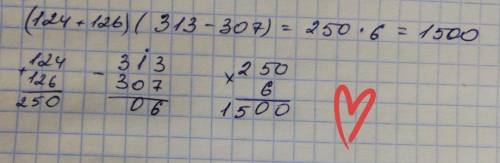 (124 + 126) ( 313 - 307) = 250 · 6 = 1500
+ 124 - 313 × 250
126 307 6
250 06 1500